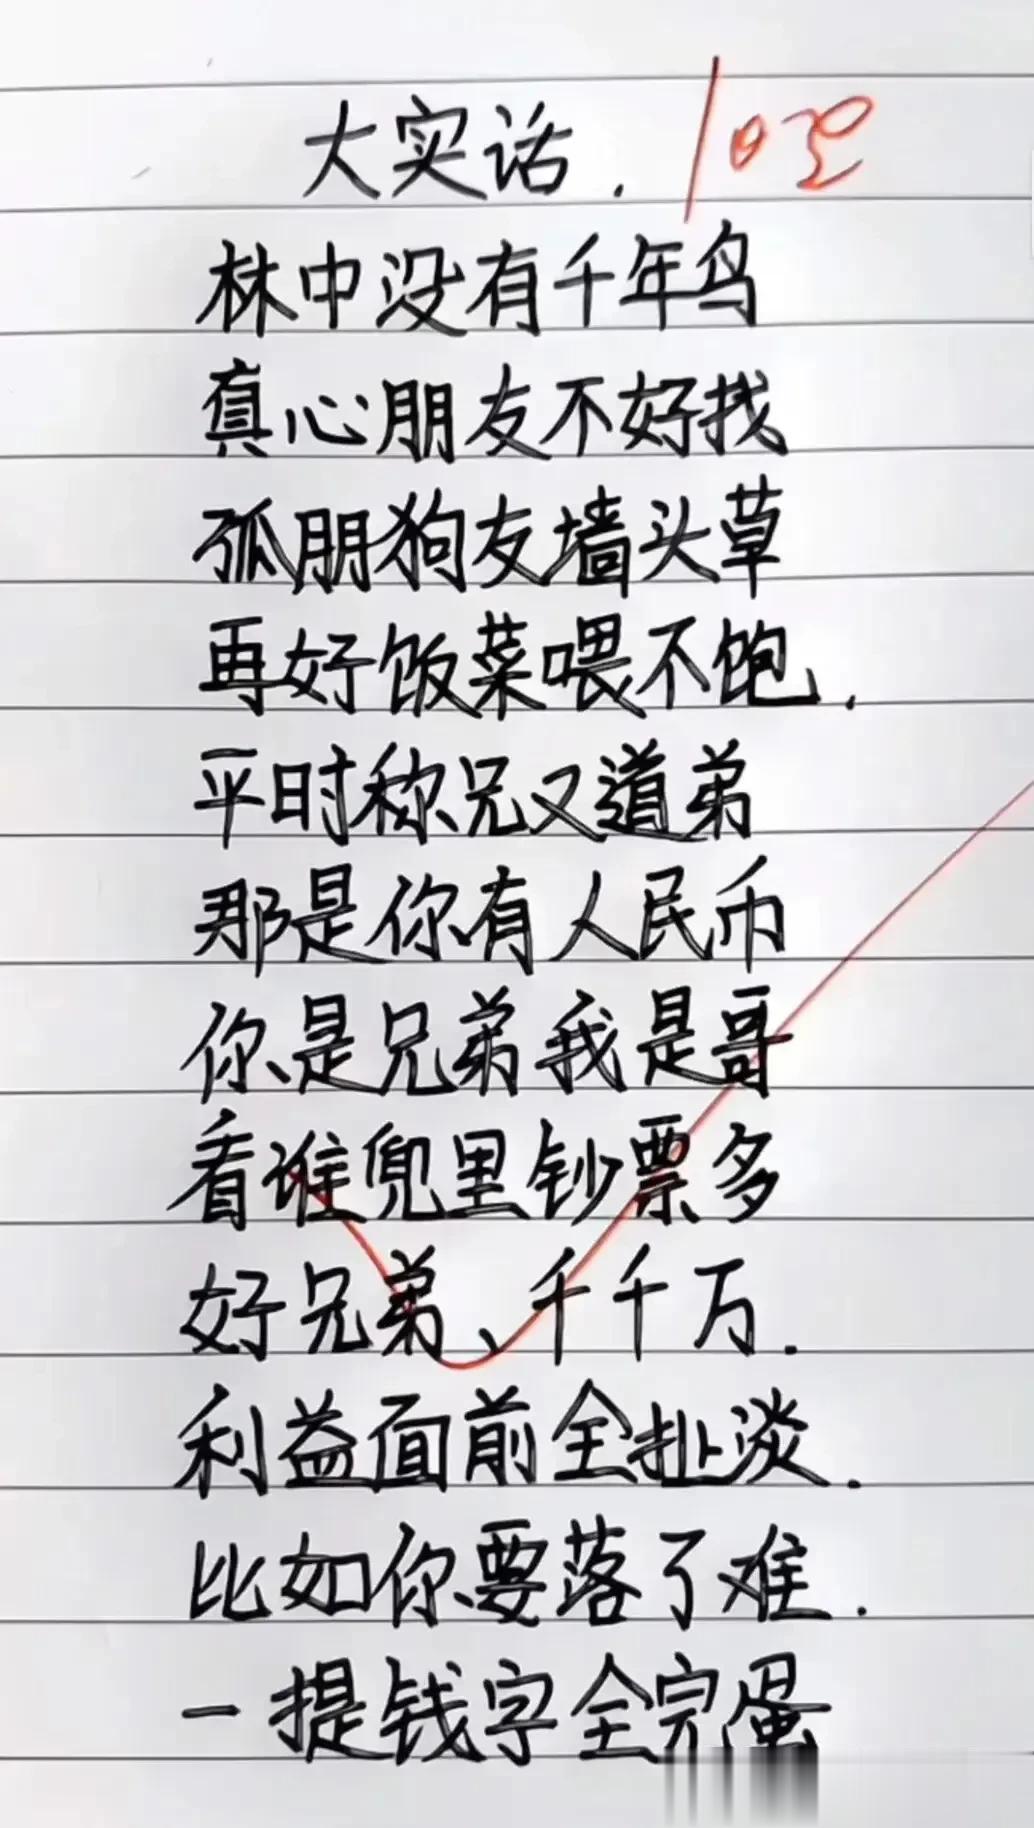 大实话. 100
林中没有千年鸟
真心朋友不好找
孤朋狗友墙头草
再好饭菜喂不饱.
平时称兄又道弟
那是你有人民币
你是兄弟我是哥
看谁兜里钞票多
好兄弟、千千万.
利益面前全扯淡.
比如你要落了难.
一提钱字全完蛋